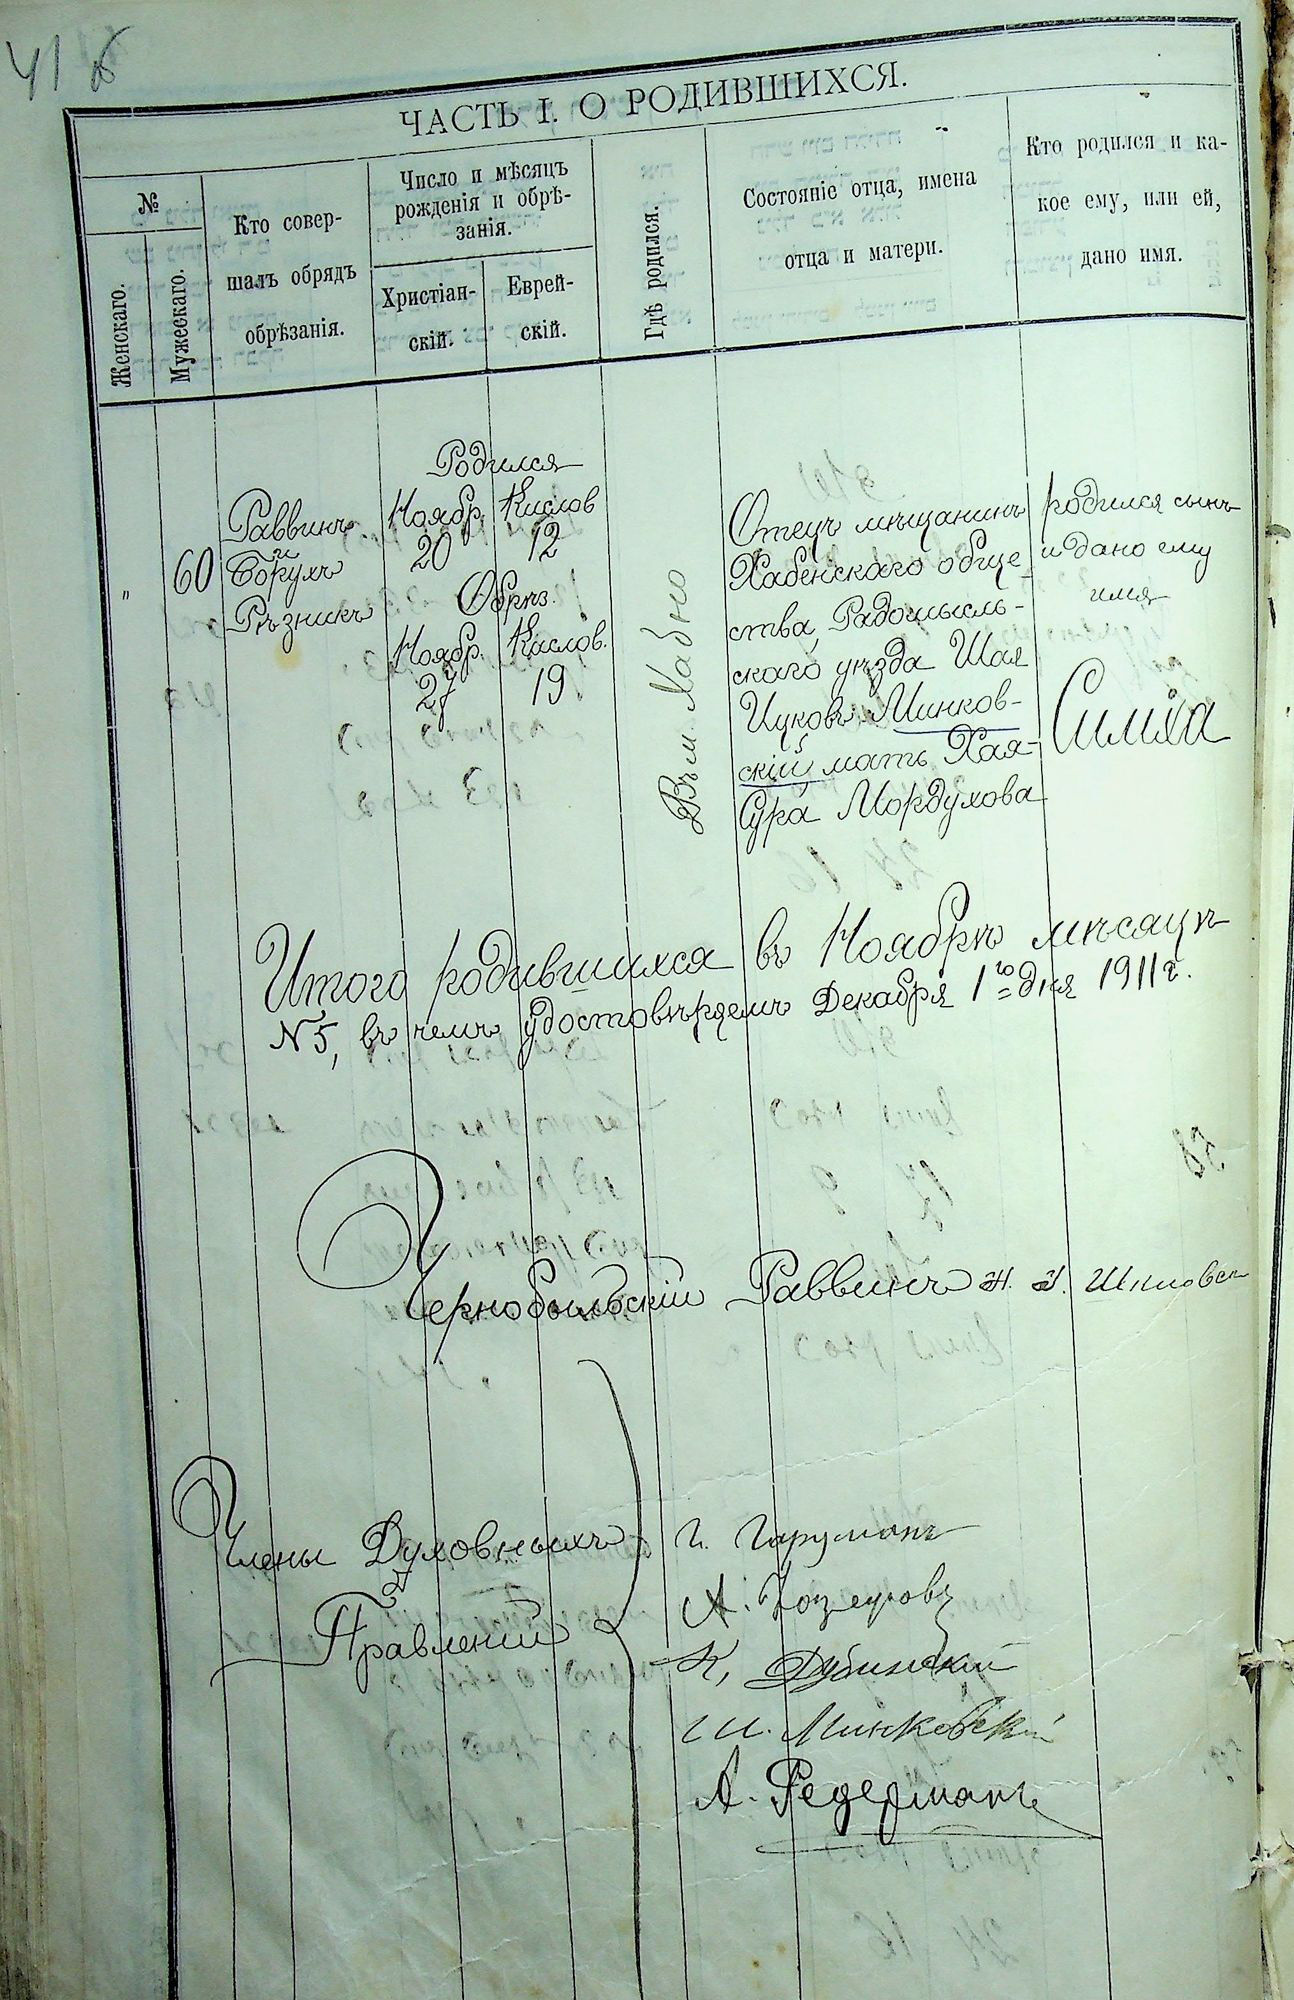 41 б
ЧАСТЬ I. О РОДИВШИХСЯ.
№
Женскаго.
Мужескаго.
Кто совер-
шалъ обрядъ
обрѣзанія.
Число и мѣсяцъ
рожденія и обрѣ-
занія.
Христіан-
скій.
Еврей-
скій.
Гдѣ родился.
Состояніе отца, имена
отца и матери.
Кто родился и ка-
кое ему, или ей,
дано имя.
"
60
Раввинъ
и
Борухъ
Рѣзникъ
Родился
Ноябр. Кислов
20 12
Обрѣз.
Ноябр. Кислов.
27 19
Въ м. Хабно
Отецъ мѣщанинъ
Хабенскаго обще-
ства, Радомысль-
скаго уѣзда Шая
Ицковъ Минков-
скій мать Хая-
Сура Мордухова
родился сынъ
и дано ему
имя
Симха
Итого родившихся въ Ноябрѣ мѣсяцѣ
№ 5, въ чемъ удостовѣряемъ Декабря 1го дня 1911 г.
Чернобыльскій Раввинъ
Члены Духовныхъ
Правленій
К. Дубинскій
Ш. Минковскій
А. Редерманъ